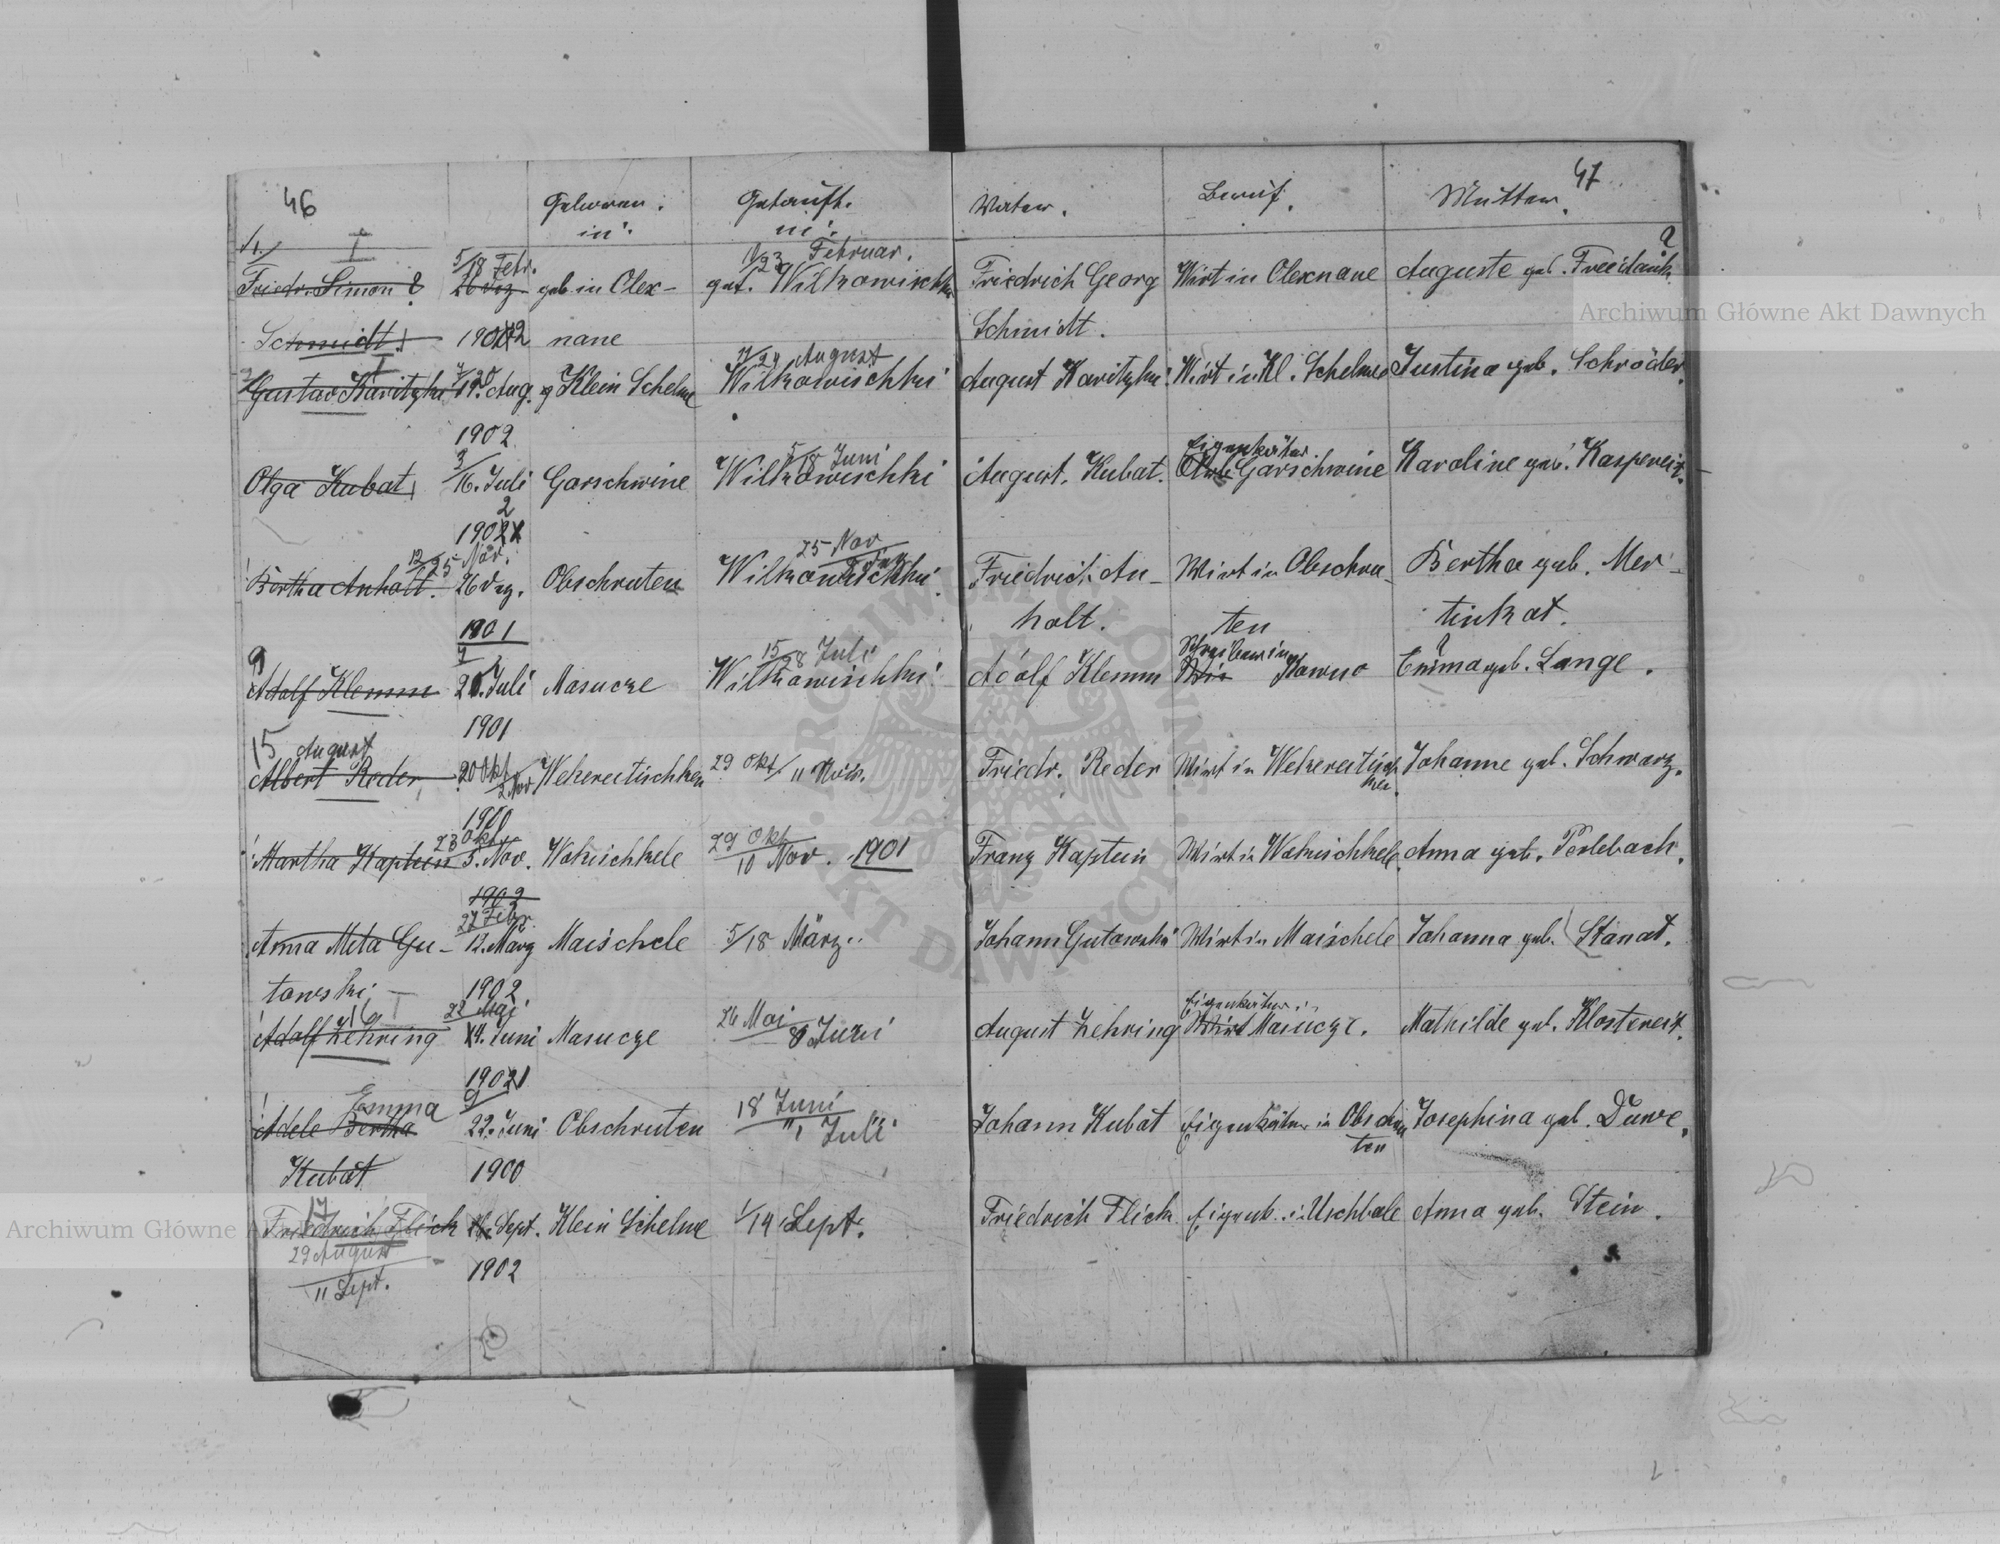 46
47
Geboren in:
Getauft in:
Vater.
Beruf.
Mutter.
1./ I
Friedr. Simon 5/18 Febr. geb. in Olex- 10/23 Februar. get. Wilkowischki Friedrich Georg Wirt in Olexnane Auguste geb. Freidank ?
Schmidt 1902 nane Schmidt.
Gustav Karitzki 7/20 Aug. Klein Schelme 11/24 August Wilkowischki August Karitzki Wirt in Kl. Schelme Justina geb. Schröder.
1902
Olga Kubat 3/16. Juli Garschwine 5/18 Juni Wilkowischki August. Kubat. Eigenkätner Garschwine Karoline geb. Kaspereit.
1902
Bertha Anholt. 12/25 Nov. 26 Dez. Obschruten 25 Nov Wilkowischki Friedrich An- Wirt in Obschru- Bertha geb. Mer-
1901 holt. ten tinkat.
Adolf Klemm 21. Juli Masucze 15/28 Juli Wilkowischki Adolf Klemm Schreiber in Kowno Emma geb. Lange.
1901
15 August
Albert Reder 20 Okt/2 Nov Wekereitischken 29 Okt/11 Nov. Friedr. Reder Wirt in Wekereitisch Johanne geb. Schwarz.
ken.
Martha Kaptein 23 Okt 5. Nov. Wokischkele 29 Okt 10 Nov. 1901 Franz Kaptein Wirt in Wokischkele. Anna geb. Perlebach.
1902
Anna Meta Gu- 27 Febr. 12. März Maischele 5/18 März. Johann Gutowski Wirt in Maischele Johanna geb. Stanat.
towski 1902
Adolf Zehring 22 Mai 4. Juni Masucze 26 Mai 8 Juni August Zehring Eigenkätner in Wirt Masucze. Mathilde geb. Klostereit.
1902
Emma
Adele Bertha 9 22. Juni Obschruten 18 Juni 1 Juli Johann Kubat Eigenkätner in Obschru Josephina geb. Duwe.
ten
Kubat 1900
17
Friedrich Flick Sept. Klein Schelme 1/14 Sept. Friedrich Flick Eigenk. in Uschbale Anna geb. Stein.
29 August
11 Sept.
1902
Archiwum Główne Akt Dawnych
Archiwum Główne Akt Dawnych
ARCHIWUM GŁÓWNE AKT DAWNYCH